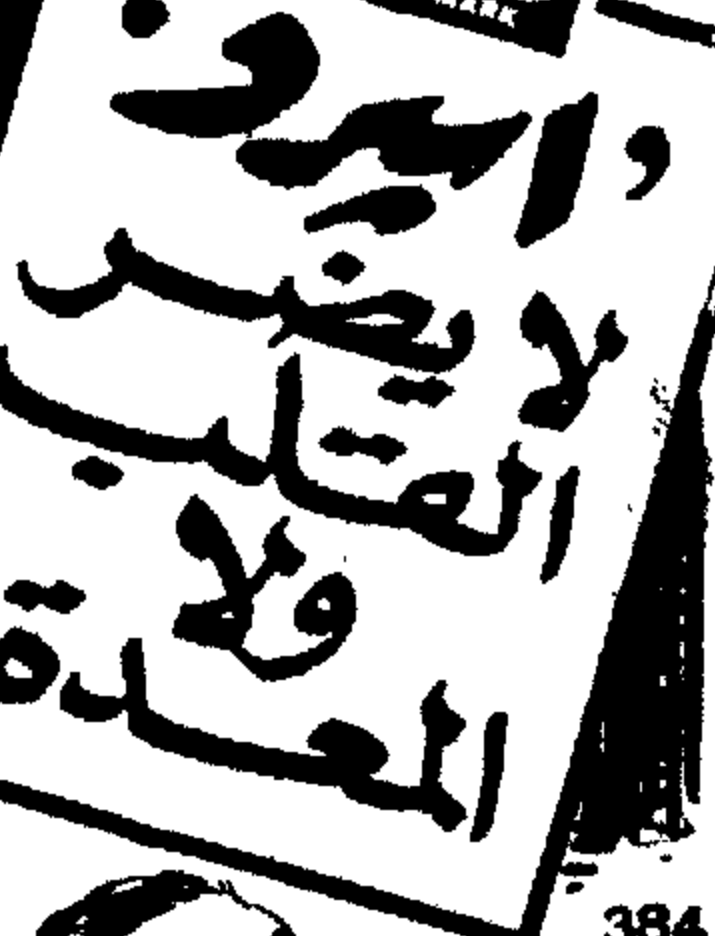 MARK
,اسبرو,
لا يضر
القلب
ولا
المعدة
384